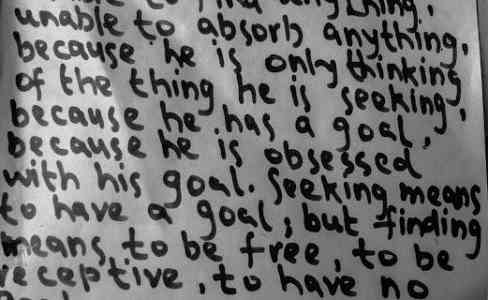 to find anything,
unable to absorb anything,
because he is only thinking
of the thing he is seeking,
because he has a goal,
because he is obsessed
with his goal. Seeking means
to have a goal; but finding
means, to be free, to be
receptive, to have no